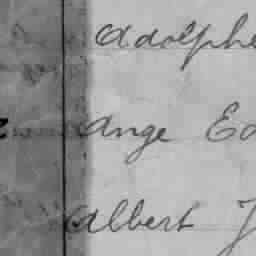 Adolphe
Ange Ed
Albert J